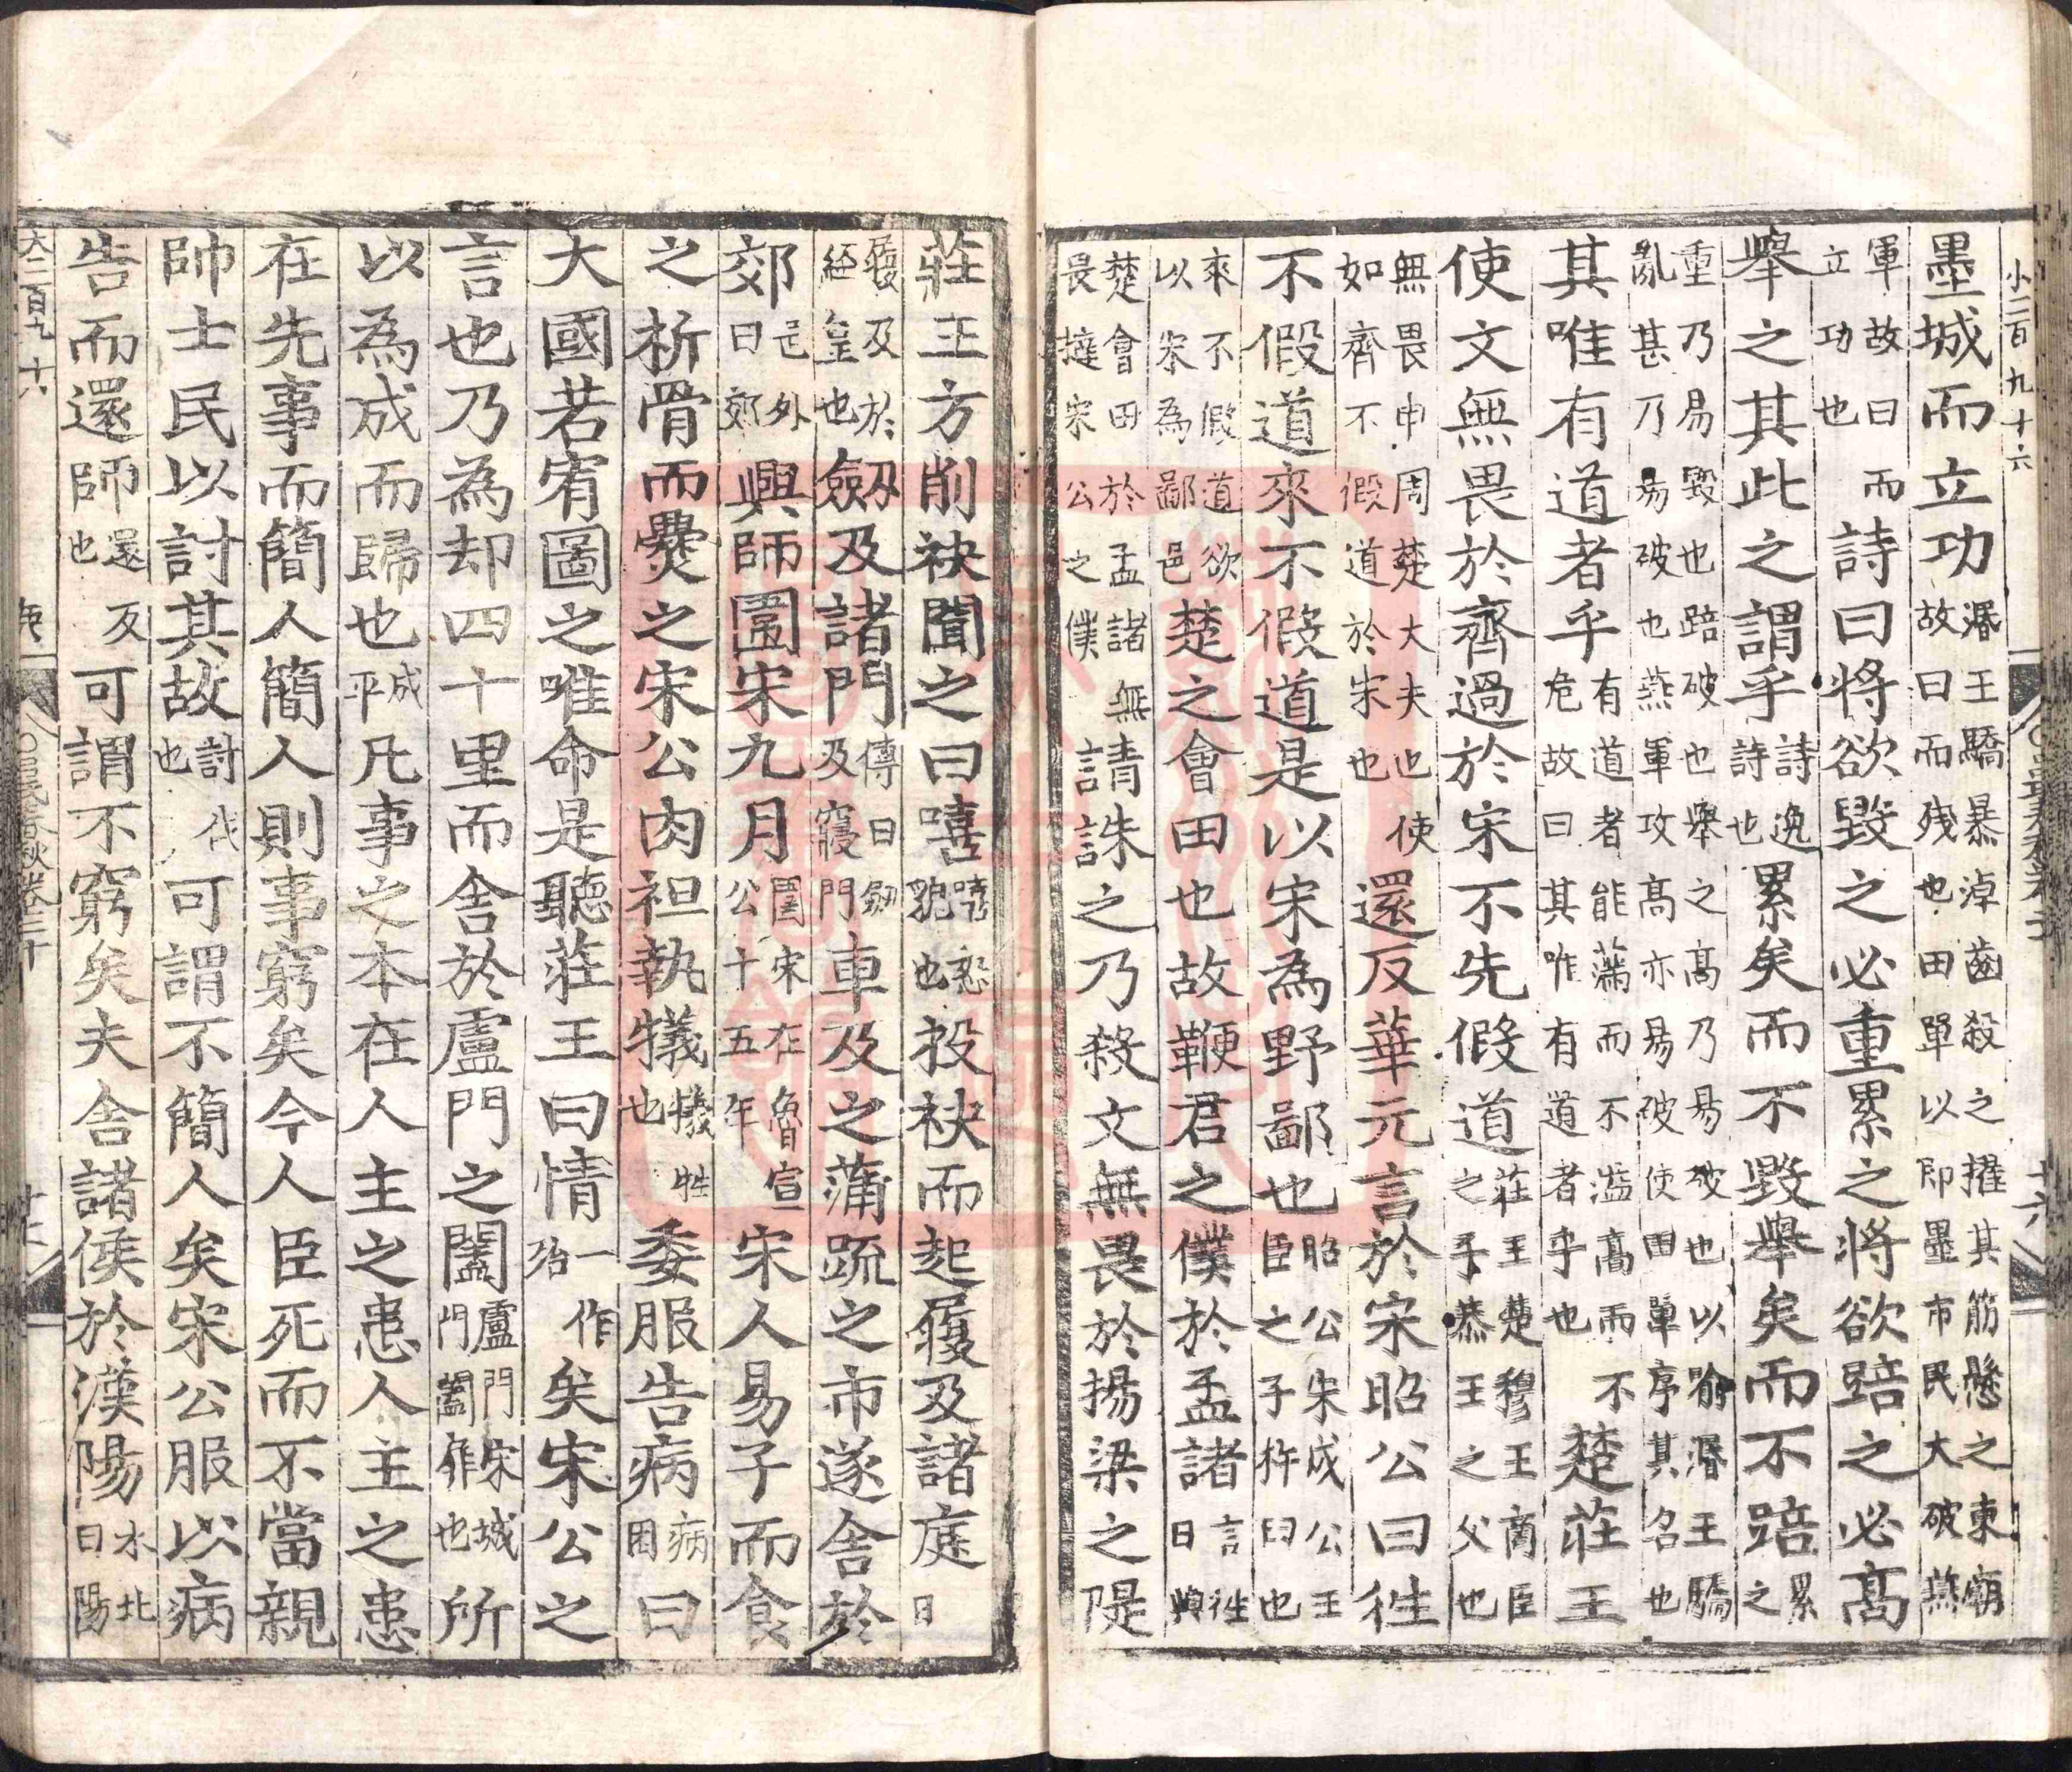 小二百九十六
墨城而立功湣王驕暴淖齒殺之擢其筋懸之東廟故曰而殘也田單以即墨市民大破燕
軍故曰而立功也詩曰將欲毀之必重累之將欲踣之必高
舉之其此之謂乎詩逸詩也累矣而不毀舉矣而不踣累之
重乃易毀也踣破也舉之高乃易破也以喻湣王驕亂甚乃易破也燕軍攻高亦易破使田單序其名也
其唯有道者乎有道者能滿而不溢高而不危故曰其唯有道者乎也楚莊王
使文無畏於齊過於宋不先假道莊王楚穆王商臣之子恭王之父也
無畏申周楚大夫也使如齊不假道於宋也還反華元言於宋昭公曰往
不假道來不假道是以宋為野鄙也昭公宋成公王臣之子杵臼也
來不假道欲以宋為鄙邑楚之會田也故鞭君之僕於孟諸言往日與
楚會田於孟諸無畏撻宋公之僕請誅之乃殺文無畏於揚梁之隄
莊王方削袂聞之曰嘻嘻怒貌也投袂而起履及諸庭曰
履及及於絰皇也劔及諸門傳曰劔及寢門車及之蒲疏之市遂舍於
郊邑外曰郊興師圍宋九月圍宋在魯宣公十五年宋人易子而食
之析骨而爨之宋公肉袒執犧犧牲也委服告病病困曰
大國若宥圖之唯命是聽莊王曰情一作殆矣宋公之
言也乃為却四十里而舍於盧門之闔盧門宋城門闔扉也所
以為成而歸也成平凡事之本在人主之患人主之患
在先事而簡人簡人則事窮矣今人臣死而不當親
帥士民以討其故討伐也可謂不簡人矣宋公服以病
告而還師還反也可謂不窮矣夫舍諸侯於漢陽水北曰陽
大二百九十六
呂氏春秋卷二十